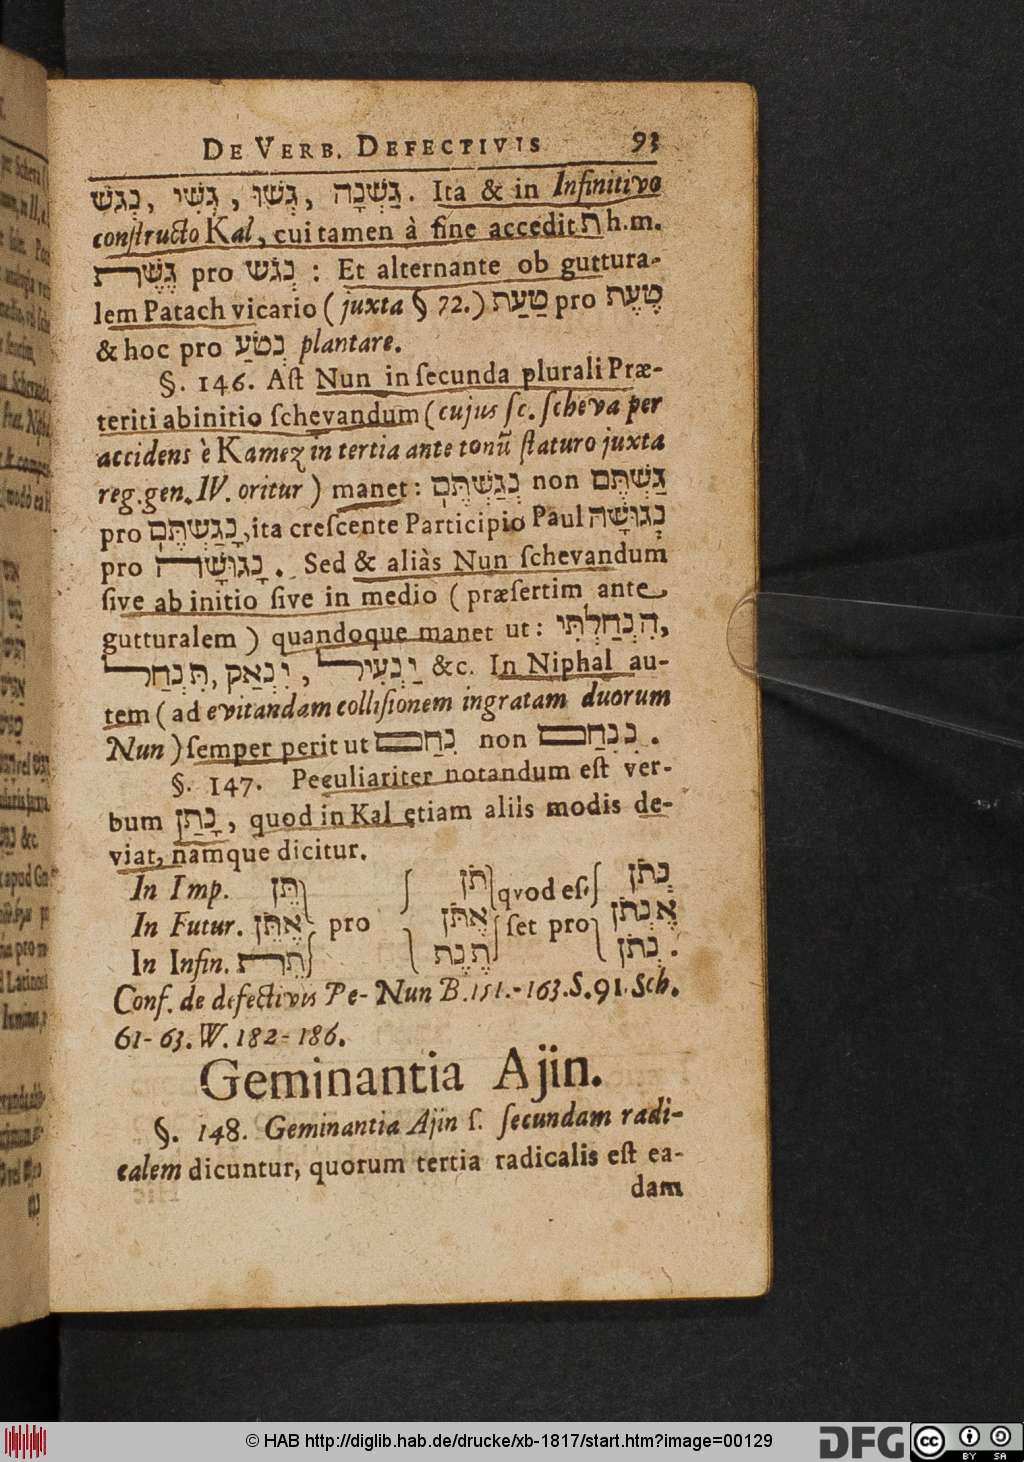 DE VERB. DEFECTIVIS 93
נְגשׁ, גְּשִׁי, גְּשׁוּ, גַּשְׁנָה. Ita & in Infinitivo
constructo Kal, cui tamen à fine accedit ת h.m.
גֶּשֶׁת pro נְגשׁ : Et alternante ob guttura-
lem Patach vicario (juxta § 72.) טַעַת pro טֶעֶת
& hoc pro נְטֹעַ plantare.
§. 146. Aſt Nun in ſecunda plurali Præ-
teriti abinitio ſchevandum (cujus ſc. ſcheva per
accidens è Kamez in tertia ante tonũ ſtaturo juxta
reg.gen. IV. oritur) manet: נְגַשְׁתֶּם non גַּשְׁתֶּם
pro נָגַשְׁתֶּם, ita creſcente Participio Paul נְגוּשָׁה
pro נָגוּשָׁה. Sed & aliàs Nun ſchevandum
ſive ab initio ſive in medio (præſertim ante
gutturalem) quandoque manet ut: הִנְחַלְתִּי,
תִּנְחַל, יִנְאַק, יַנְעִיל &c. In Niphal au-
tem (ad evitandam colliſionem ingratam duorum
Nun) ſemper perit ut נִחַם non נִנְחַם.
§. 147. Peculiariter notandum eſt ver-
bum נָתַן, quod in Kal etiam aliis modis de-
viat, namque dicitur.
In Imp. תֵּן } { תֹּן } qvod eſ- { נְתֹן
In Futur. אֶתֵּן } pro { אֶתֹּן } ſet pro { אֶנְתֹּן
In Infin. תֵּת } { תֶּנֶת } { נְתֹן.
Conf. de defectivis Pe-Nun B.151.-163.S.91.Sch.
61-63.W.182-186.
Geminantia Ajin.
§. 148. Geminantia Ajin ſ. ſecundam radi-
calem dicuntur, quorum tertia radicalis eſt ea-
dam
© HAB http://diglib.hab.de/drucke/xb-1817/start.htm?image=00129
DFG cc BY SA